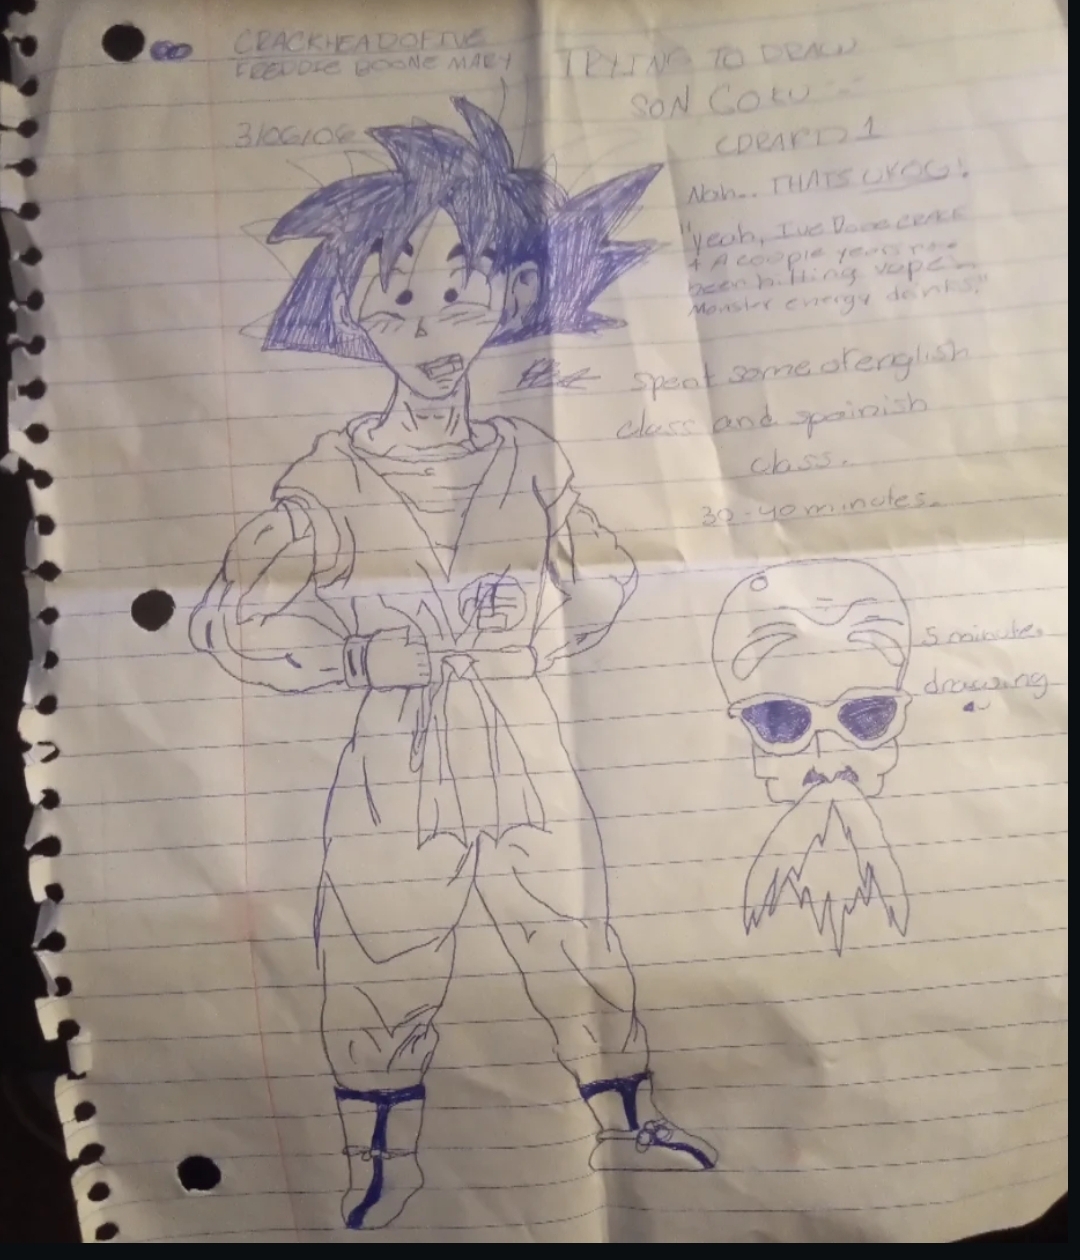 CRACKHEADOFIVE
FREDDIE BOONE MARY
3/06/06
TRYING TO DRAW
SON GOKU
(DRAFT) 1
Nah.. THATS UVOG!
"yeah, I've Done CRACK
4 A coopie years now
been hitting vape
Monster energy drinks."
Spent some of english
class and spainish
class.
30-40 minutes.
5 minute
drawing